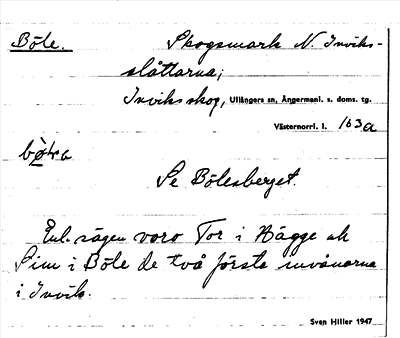 Böle. Skogsmark N. Inviks-
slåttarna;
Inviks skog, Ullångers sn, Ångermanl. s. doms. tg.
Västernorrl. l. 163a
Se Bölesberget.
Enl. sägen voro Tor i Hägge och
Sim i Böle de två första invånarna
i Invik.
Sven Hiller 1947